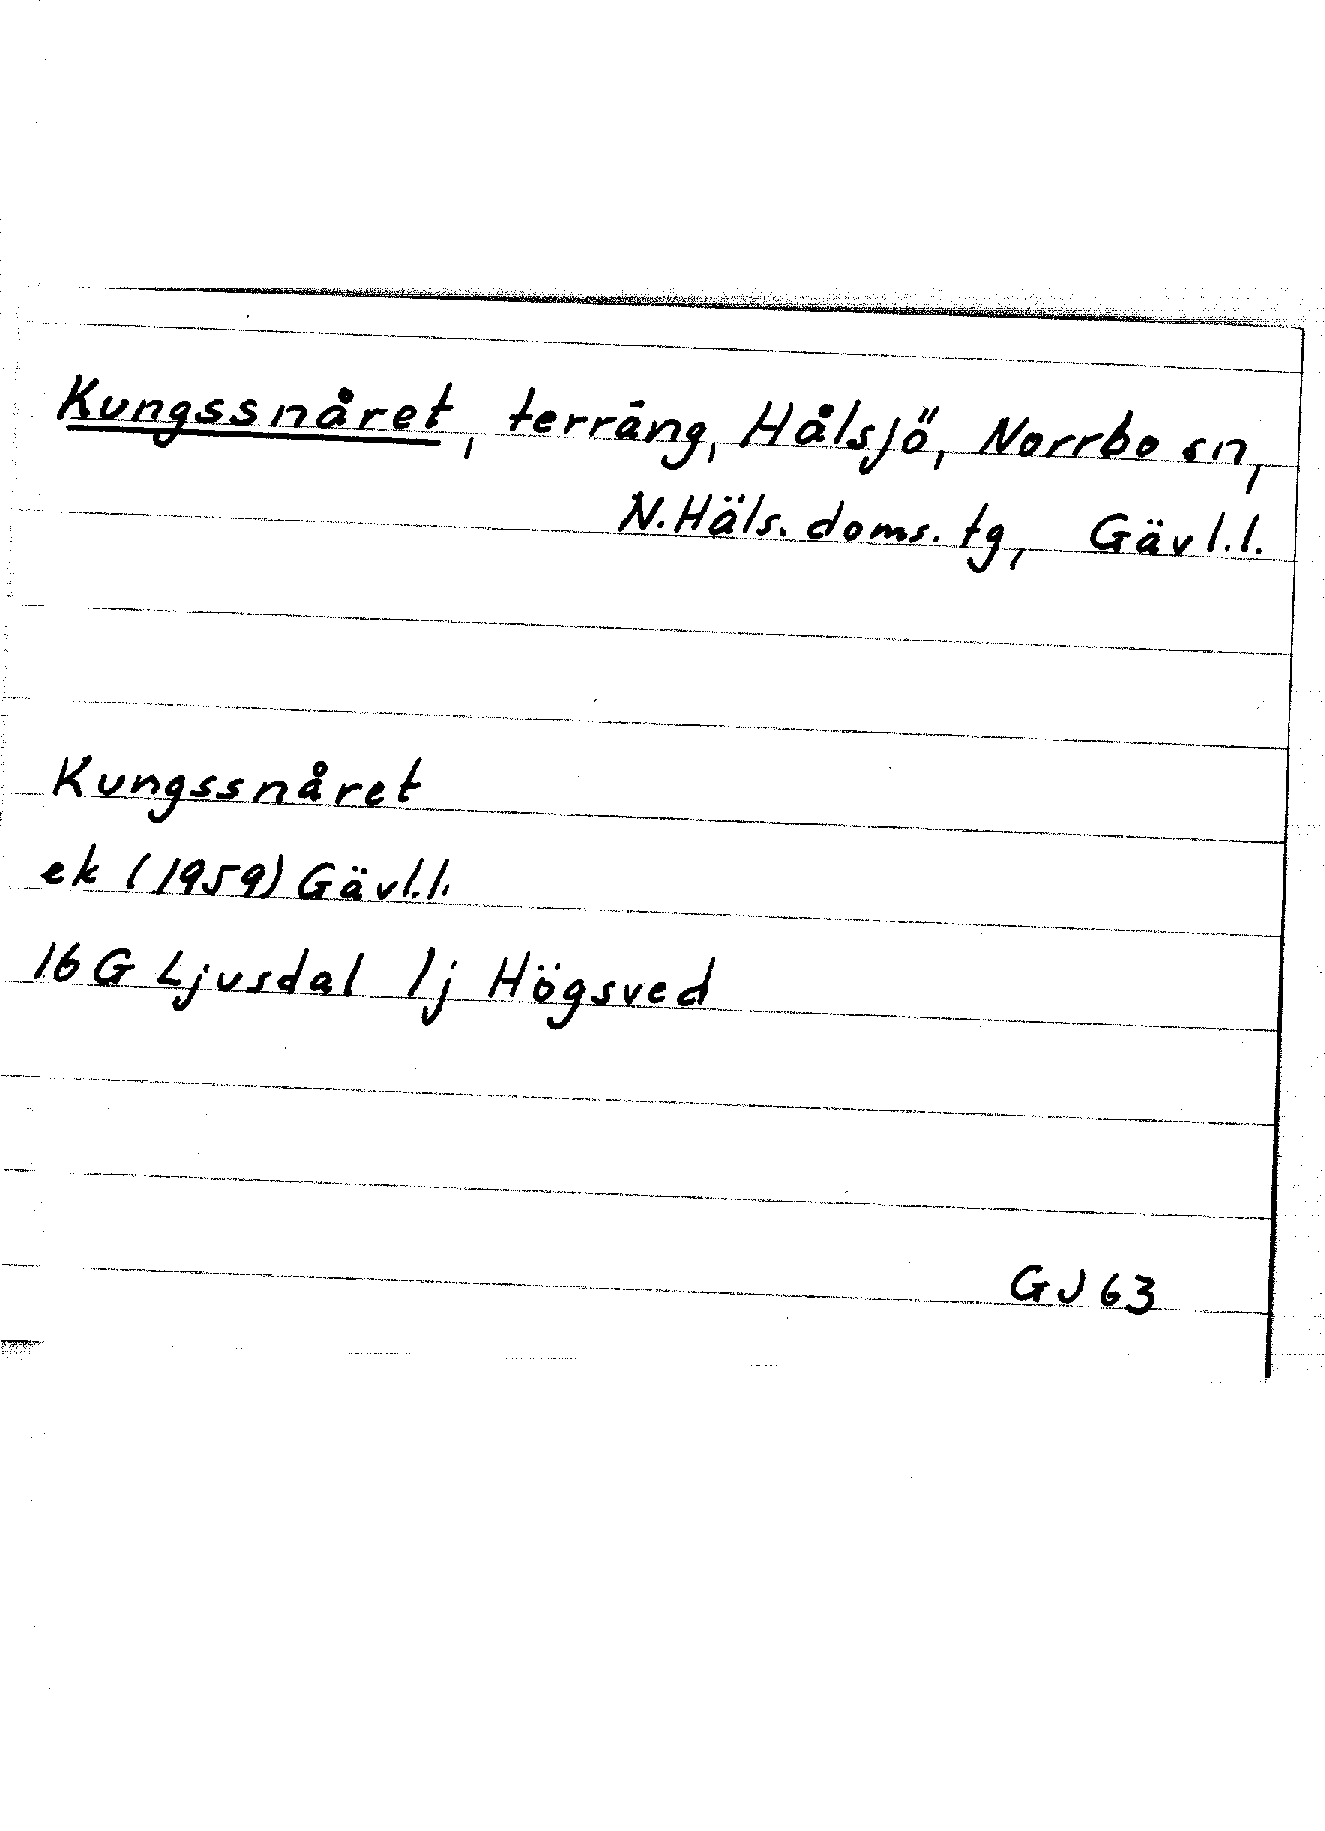 Kungssnåret, terräng, Hålsjö, Norrbo sn,
N. Häls. doms. tg, Gävl.l.
Kungssnåret
ek (1959) Gävl.l.
16 G Ljusdal 1j Högsved
GJ 63